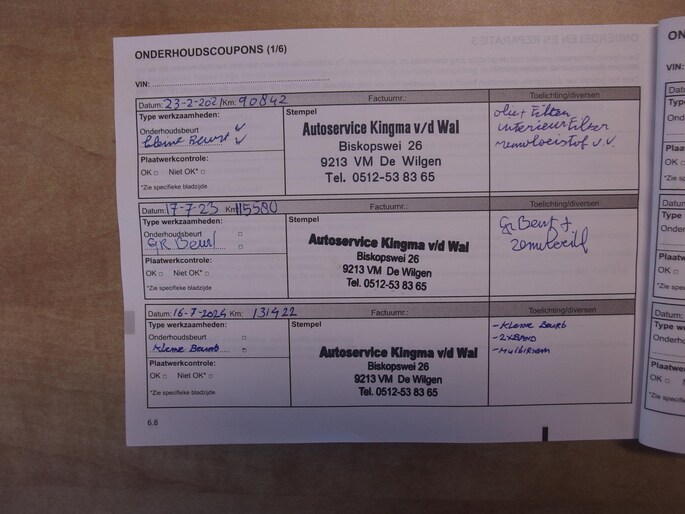 ONDERHOUDSCOUPONS (1/6)
VIN:
Datum: 23-2-2021 Km: 90842 Factuurnr.: Toelichting/diversen
Type werkzaamheden:
Onderhoudsbeurt
kleine Beurt
Plaatwerkcontrole:
OK Niet OK*
*Zie specifieke bladzijde
Stempel
Autoservice Kingma v/d Wal
Biskopswei 26
9213 VM De Wilgen
Tel. 0512-53 83 65
olie + Filter
interieurfilter
remvloeistof v.v.
Datum: 17-7-23 Km: 115580 Factuurnr.: Toelichting/diversen
Type werkzaamheden:
Onderhoudsbeurt
GR Beurt
Plaatwerkcontrole:
OK Niet OK*
*Zie specifieke bladzijde
Stempel
Autoservice Kingma v/d Wal
Biskopswei 26
9213 VM De Wilgen
Tel. 0512-53 83 65
Gr Beurt +
Datum: 16-7-2024 Km: 131422 Factuurnr.: Toelichting/diversen
Type werkzaamheden:
Onderhoudsbeurt
kleine Beurt
Plaatwerkcontrole:
OK Niet OK*
*Zie specifieke bladzijde
Stempel
Autoservice Kingma v/d Wal
Biskopswei 26
9213 VM De Wilgen
Tel. 0512-53 83 65
- Kleine Beurt
- 2xBAND
- Multiriem
6.8
VIN: